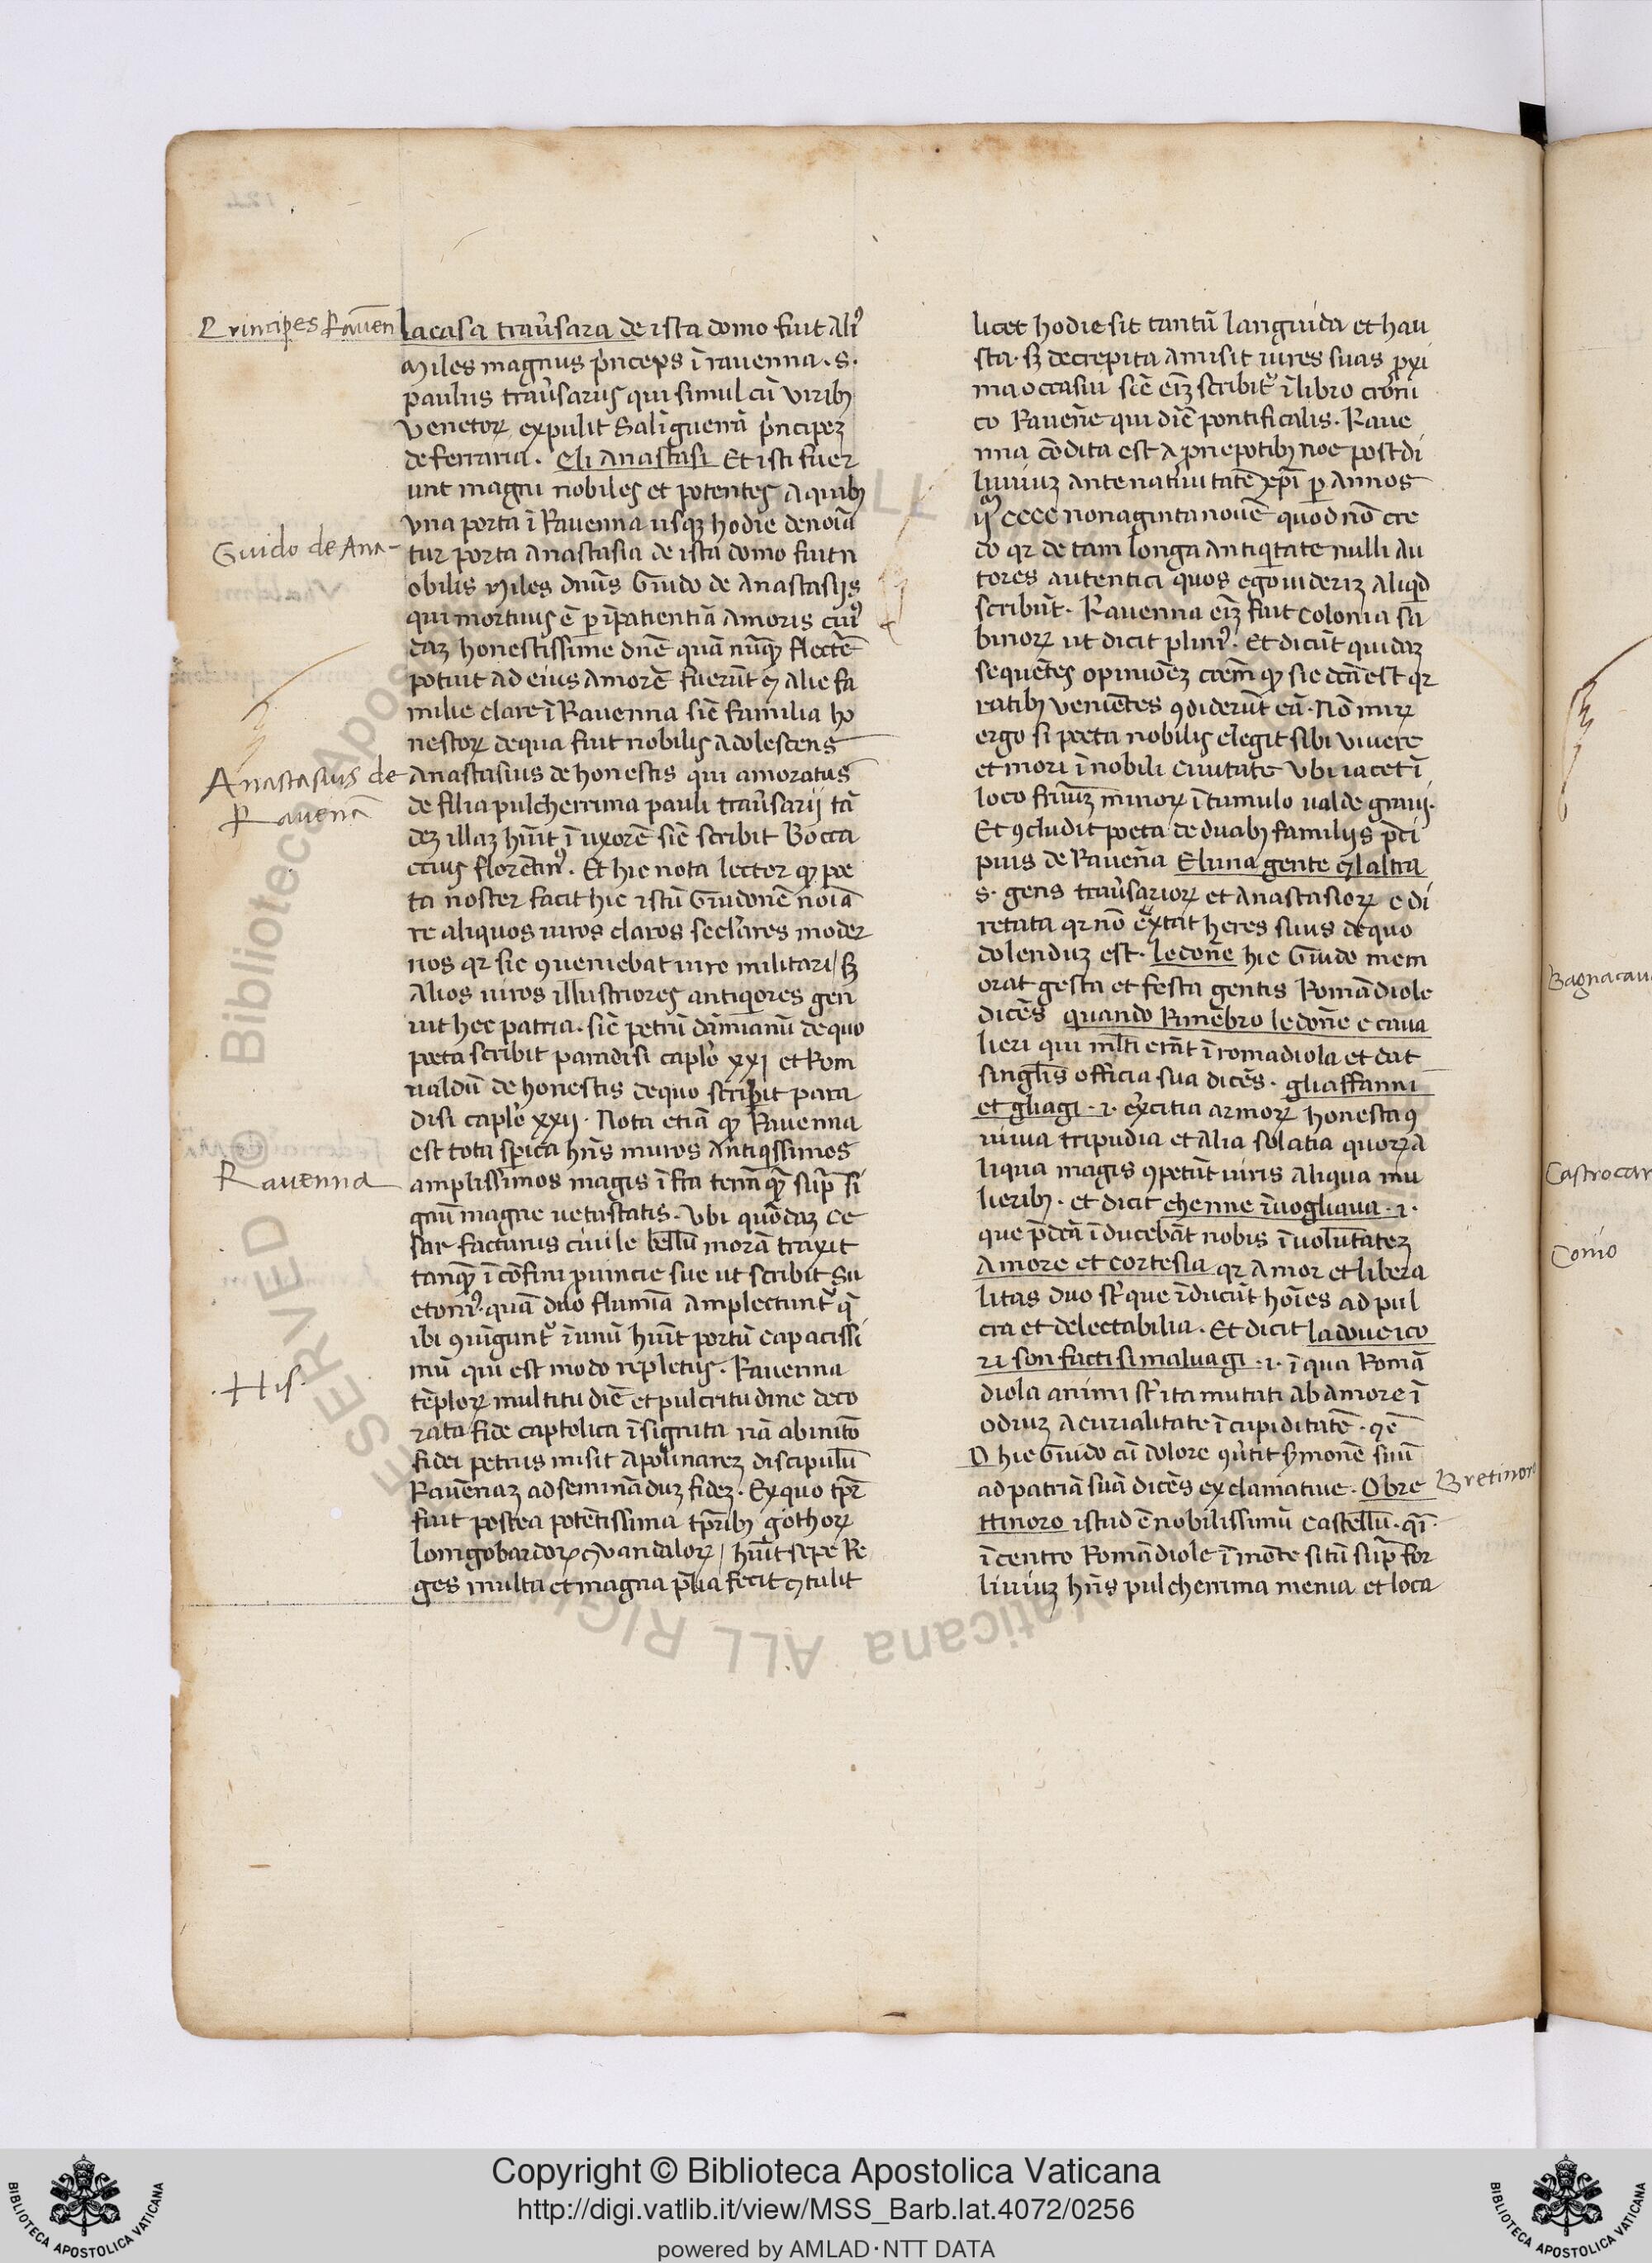 Principes Raven̄
la casa trau̓sara de ista domo fuit aliꝰ
Miles magnus pͥnceps ī rauenna . s.
paulus trau̓sarus qui simul cū virib3
venetoꝝ expulit Salīguerrā pͥncipez
de ferraria . eli anastasi Et isti fuer
unt magni nobiles et potentes a quib3
vna porta ī Rauenna usqꝫ hodie denoīa
Guido de Ana-
tur porta anastasia de ista domo fuit n
obilis Miles dnūs Guido de Anastasijs
qui mortuus ē ꝑ īpatientiā amoris cuiꝰ
daz honestissime dnē quā nūqꝫ flectē
potuit ad eius amorē fuerūt ⁊ alie fa
milie clare ī Rauenna sic̄ familia ho
nestoꝝ de qua fuit nobilis adolescens
Anastasius de Rauenā
Anastasius de honestis qui amoratus
de filia pulcherrima pauli trau̓sarij tā
dez illaz hūit ī uxorē sic̄ scribit Bocca
ccius florētinꝰ . Et hic nota lector qꝫ poe
ta noster facit hic istū Guidonē noīa
re aliquos uiros claros secl̓ares moder
nos qr sic ꝯueniebat uiro militari / sꝫ
alios uiros illustriores antiqͥores gen
uit hec patria . sic̄ petrū dāmianū de quo
poeta scribit paradisi caplo̓ xxj et Rom
ualdū de honestis de quo scribit para
disi caplo̓ xxij . Nota etiā qꝫ Rauenna
est tota sperica hn̄s muros antiqͥssimos
Rauenna
amplissimos magis īfra terrā qꝫ supra si
gnū magne uetustatis . Vbi quōdaz Ce
sar facturus ciuile bellū morā traxit
tanqꝫ ī cōfini ꝓuincie sue ut scribit Su
etoniꝰ . quā duo flumīa amplectunt̉ q̄
ibi ꝯiūgunt̉ ī unū hūit portū capacissi
mū qui est modo repletus . Rauenna
His.
tēploꝝ multitudīe et pulcritudine deco
rata fide captolica īsignita nā ab initō
fidei petrus misit Apolinarez discipulū
Rauēnaz ad semināduz fidez . Ex quo tp̄r
fuit postea potētissima tp̄rib3 gothoꝝ
longobardoꝝ ⁊ vandaloꝝ / hūit sepe Re
ges multa et magna p̄lia fecit ⁊ tulit
licet hodie sit tantū languida et hau
sta . sꝫ decrepita amisit uires suas ꝓxi
ma occasui sic̄ eīz scribit̉ ī libro croni
co Rauen̄e qui dic̄ pontificalis . Raue
nna cōdita est a ꝓnepotib3 noe post di
luuiuz ante natiuitatē xp̄i ꝑ annos
ijᵐ cccc nonaginta nouē quod nō cre
do qr de tam longa antiqͥtate nulli au
tores autentici quos ego uiderīz aliqͥd
scribūt . Rauenna eīz fuit colonia sa
binoꝝ ut dicit pliniꝰ . Et dicūt quidaz
sequētes opiniōez cōem qꝫ sic dcā est qr
ratib3 veniētes ꝯdiderūt eā . Nō miꝝ
ergo si poeta nobilis elegit sibi viuere
et mori ī nobili ciuitate vbi iacet ī
loco fratruz minoꝝ ī tumulo ualde graui .
Et ꝯcludit poeta de duab3 familijs p̄ci
puis de Rauen̄a E luna gente ⁊ laltra
s . gens trau̓sarioꝝ et Anastasioꝝ e di
retata qr nō extat heres suus de quo
dolenduz est . le don̄e hic Guido mem
orat gesta et festa gentis Romādiole
dicēs quando Rimēbro le don̄e e caua
lieri qui ml̄ti erāt ī romādiola et dat
singl̄is officia sua dicēs . gli affanni
et gli agi . i . exc̓itia armoꝝ honesta ꝯ
uiuia tripudia et alia solatia quoꝝ a
liqua magis ꝯpetūt uiris aliqua mu
lierib3 . et dicit che nne īuogliaua . i .
que p̄dcā īducebāt nobis ī uoluntatez
Amore et cortesia qr amor et libera
litas duo st̓ que īducūt hoīes ad pul
cra et delectabilia . Et dicit la doue i co
ri son facti si maluagi . i . ī qua Romā
diola animi st̓ ita mutati ab amore ī
odiuz a curialitate ī cupiditatē . qē
O hic Guido cū dolore ꝯu̓tit s̓monē suū
Bretinoro
ad patriā suā dicēs exclamatiue . O bre
ttinoro istud ē nobilissimū castellū . qͥ
ī centro Romādiole ī mōte sitū supra for
liuiuz hn̄s pulcherrima menia et loca
Castrocar
Como
Copyright © Biblioteca Apostolica Vaticana
http://digi.vatlib.it/view/MSS_Barb.lat.4072/0256
powered by AMLAD·NTT DATA
BIBLIOTECA APOSTOLICA VATICANA
BIBLIOTECA APOSTOLICA VATICANA